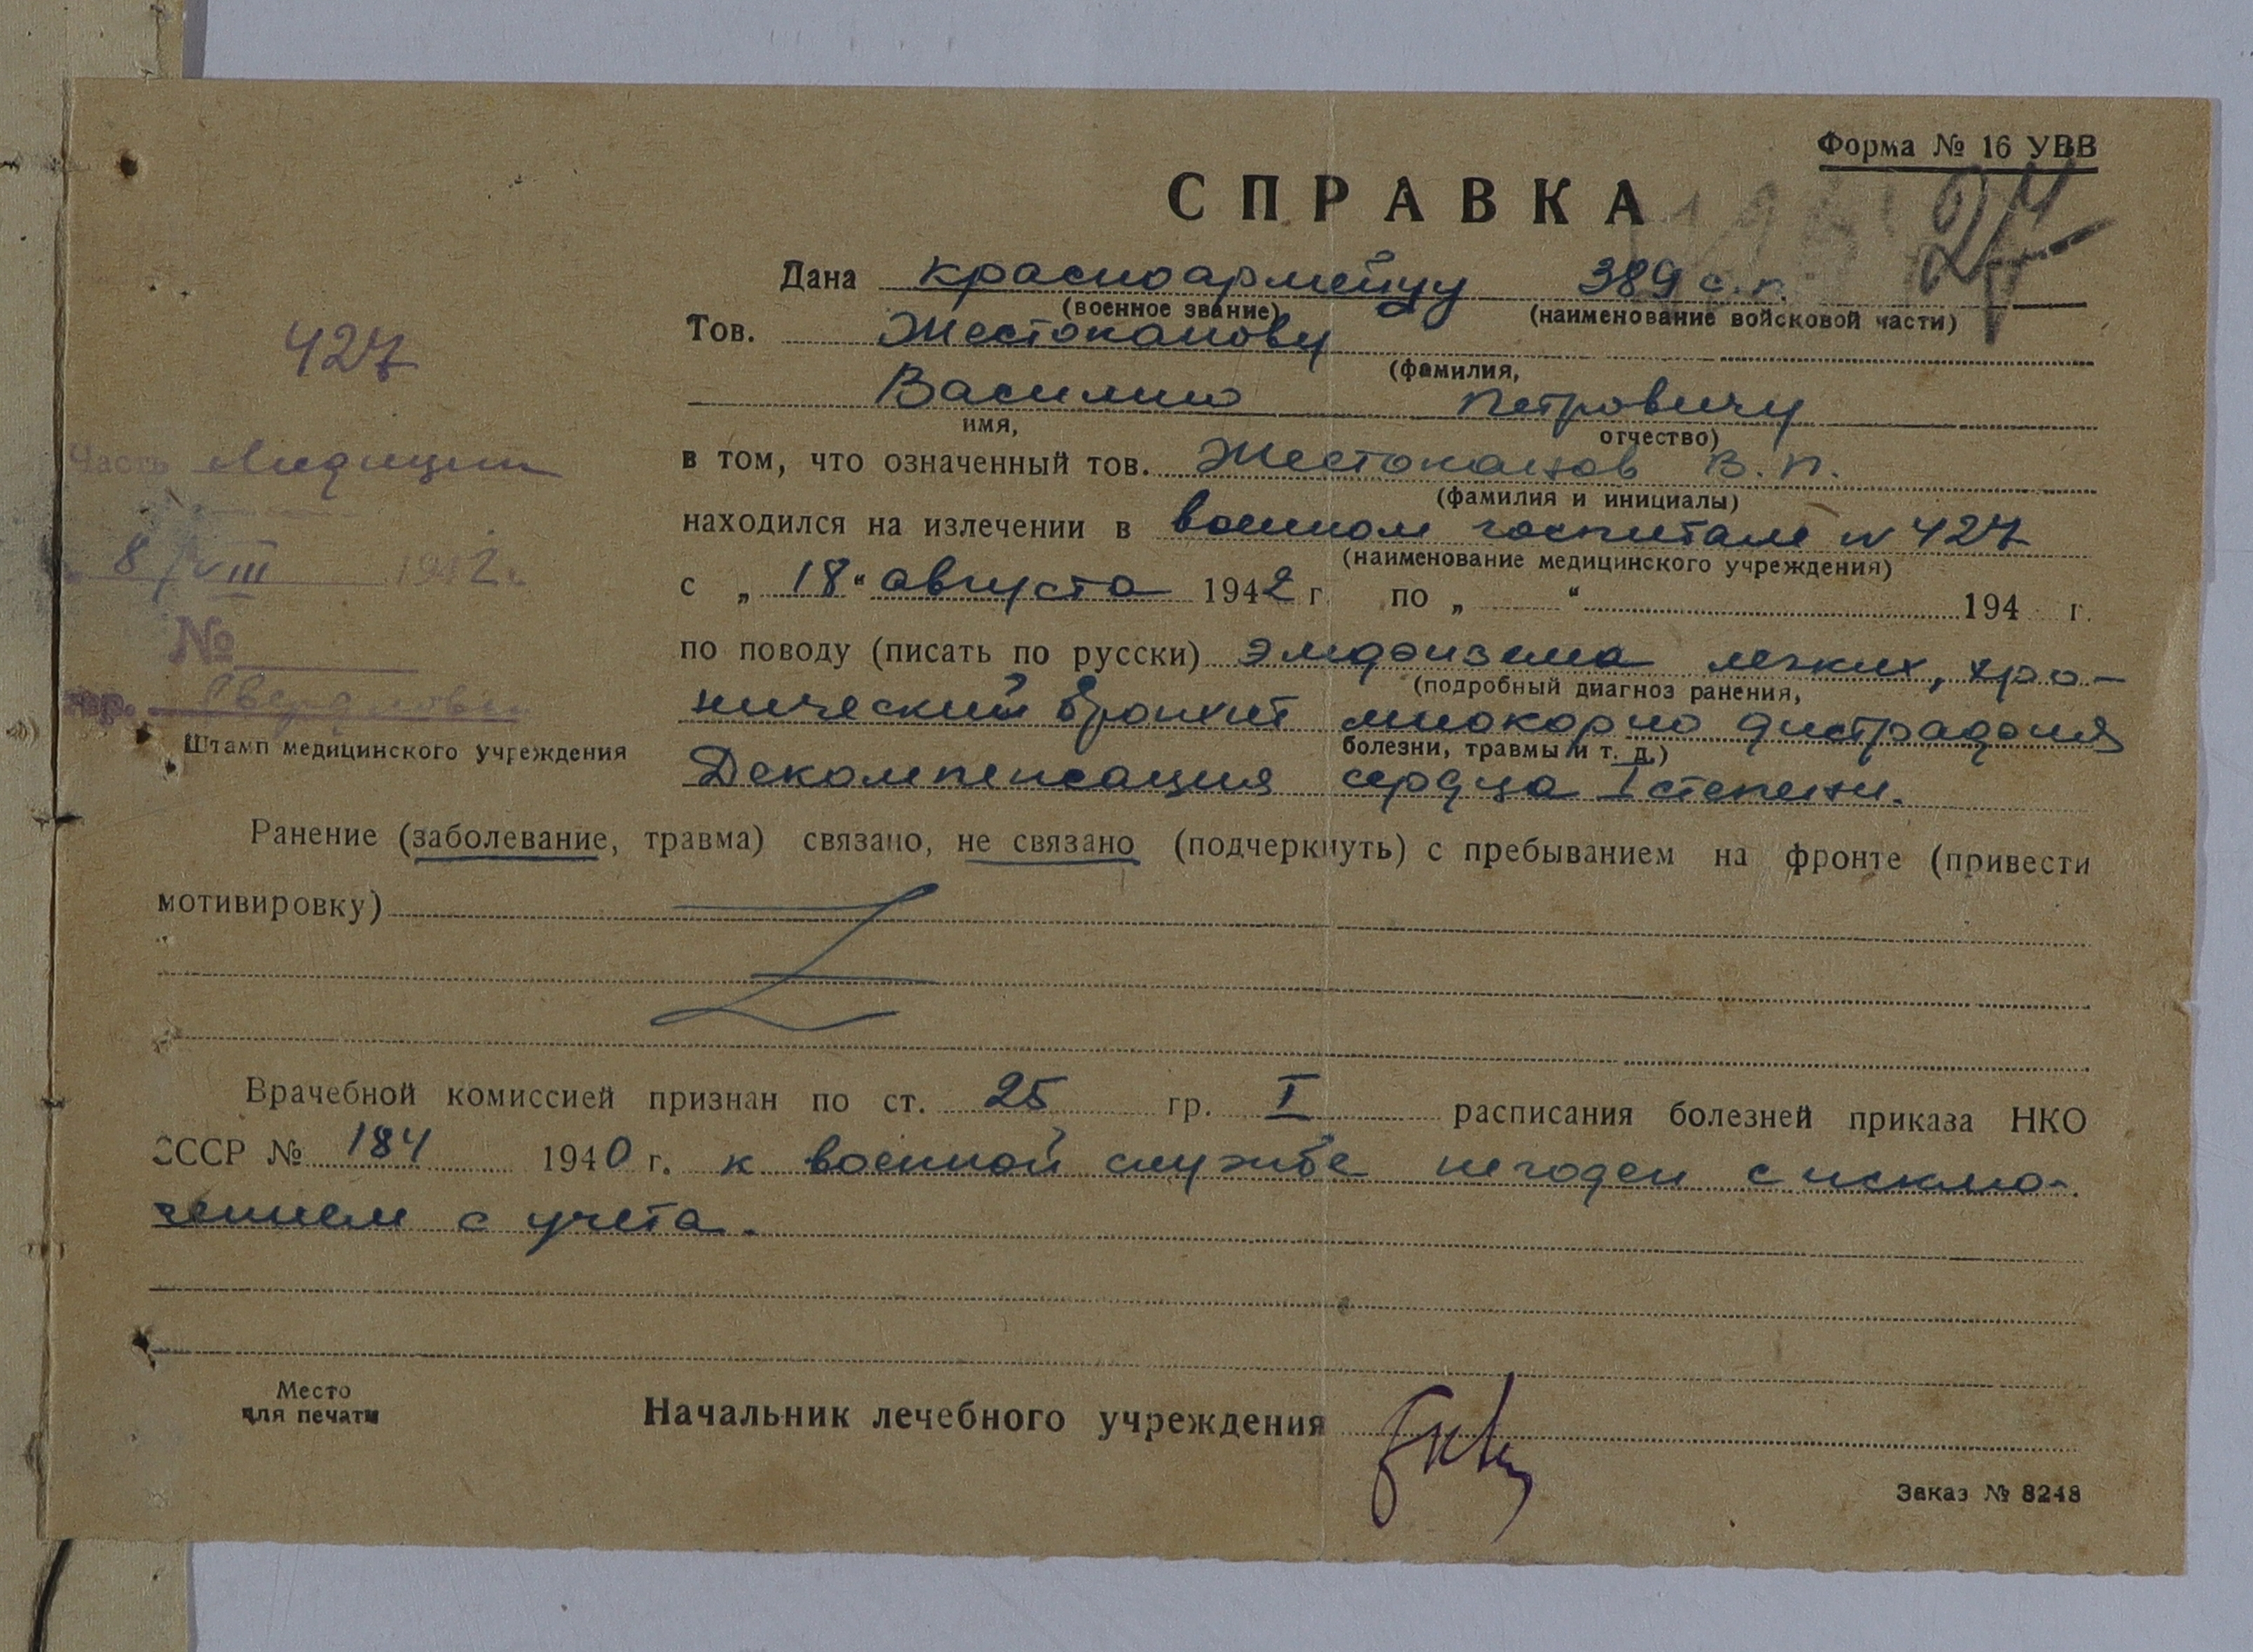 Форма № 16 УВВ
СПРАВКА
Дана красноармейцу 389 с.п.
(военное звание) (наименование войсковой части)
Тов. Жестоканову
(фамилия,
Василию Петровичу
имя, отчество)
в том, что означенный тов. Жестоканов В. П.
(фамилия и инициалы)
находился на излечении в военном госпитале N 427
(наименование медицинского учреждения)
с „ 18 “ августа 1942 г. по „ “ 194 г.
по поводу (писать по русски) эмфизема легких, хро-
(подробный диагноз ранения,
нический бронхит миокардио дистрафия
болезни, травмы и т. д.)
Декомпенсация сердца I степени.
427
Часть
8/VIII 1942 г.
№
гор. Свердловск
Штамп медицинского учреждения
Ранение (заболевание, травма) связано, не связано (подчеркнуть) с пребыванием на фронте (привести
мотивировку)
Врачебной комиссией признан по ст. 25 гр. I расписания болезней приказа НКО
СССР № 184 1940 г. к военной службе негоден с исклю-
чением с учета.
Место
для печати
Начальник лечебного учреждения
Заказ № 8248